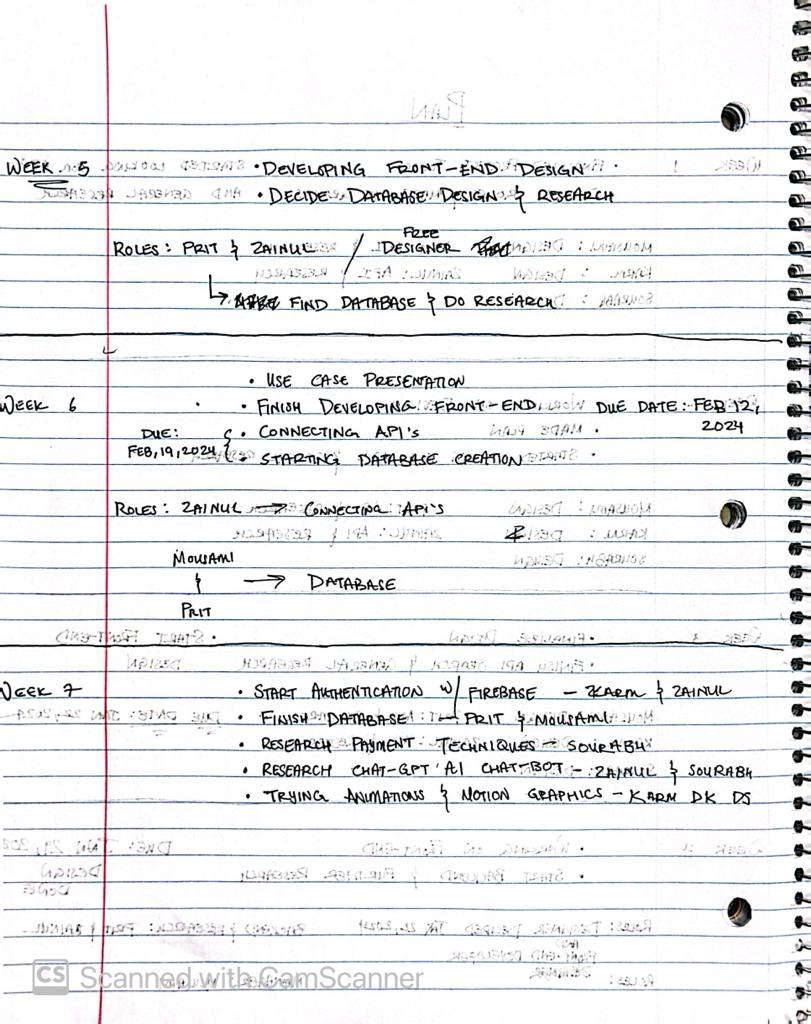 WEEK 5 • DEVELOPING FRONT-END DESIGN
• DECIDE DATABASE DESIGN & RESEARCH
ROLES: PRIT & ZAINUL / FREE DESIGNER
↳ FIND DATABASE & DO RESEARCH
• USE CASE PRESENTATION
WEEK 6 • FINISH DEVELOPING FRONT-END DUE DATE: FEB 12, 2024
DUE: FEB, 19, 2024 { • CONNECTING API'S
• STARTING DATABASE CREATION
ROLES: ZAINUL → CONNECTING API'S
MOUSAMI
& → DATABASE
PRIT
WEEK 7 • START AUTHENTICATION W/ FIREBASE - KARM & ZAINUL
• FINISH DATABASE - PRIT & MOUSAMI
• RESEARCH PAYMENT TECHNIQUES - SOURABH
• RESEARCH CHAT-GPT AI CHAT-BOT - ZAINUL & SOURABH
• TRYING ANIMATIONS & MOTION GRAPHICS - KARM DK DS
CS Scanned with CamScanner